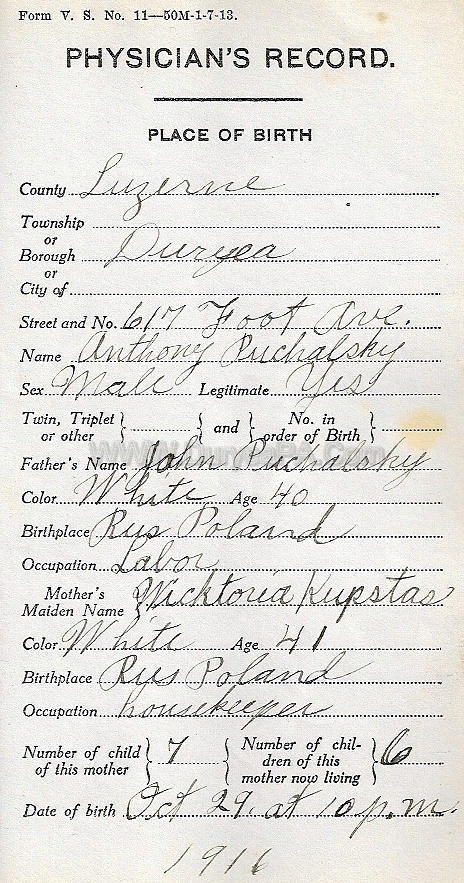 Form V. S. No. 11—50M-1-7-13.
PHYSICIAN'S RECORD.
PLACE OF BIRTH
County Luzerne
Township
or
Borough Duryea
or
City of
Street and No. 617 Foot Ave.
Name Anthony Puchalsky
Sex Male Legitimate Yes
Twin, Triplet or other } { and } { No. in order of Birth }
Father's Name John Puchalsky
Color White Age 40
Birthplace Rus Poland
Occupation Labor
Mother's Maiden Name } Wicktoria Kupstas
Color White Age 41
Birthplace Rus Poland
Occupation housekeeper
Number of child of this mother } 7 { Number of children of this mother now living } 6
Date of birth Oct 29. at 10 p.m.
1916